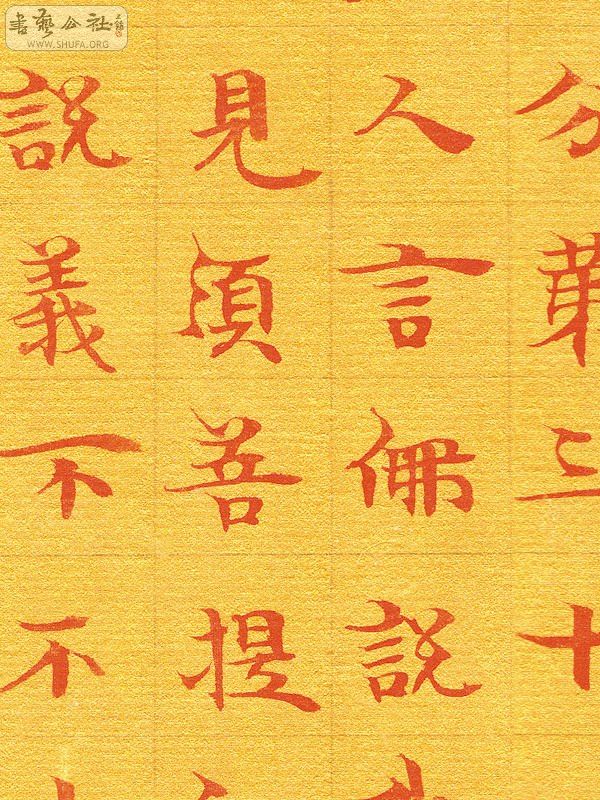 書藝公社
WWW.SHUFA.ORG
分第三十
人言佛說
見須菩提
說義不不